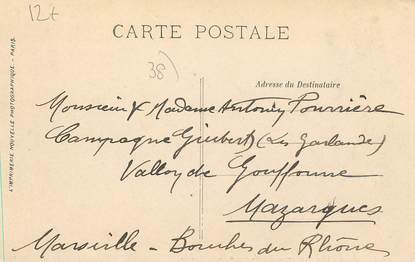 12€
CARTE POSTALE
38)
Adresse du Destinataire
Monsieur & Madame Antonin Pourrière
Campagne Guibert (Les Garlandes)
Vallon de Gouffonne
Mazargues
Marseille - Bouches du Rhône
L'IMPRIMERIE NOUVELLE PHOTOGRAPHIQUE - PARIS.